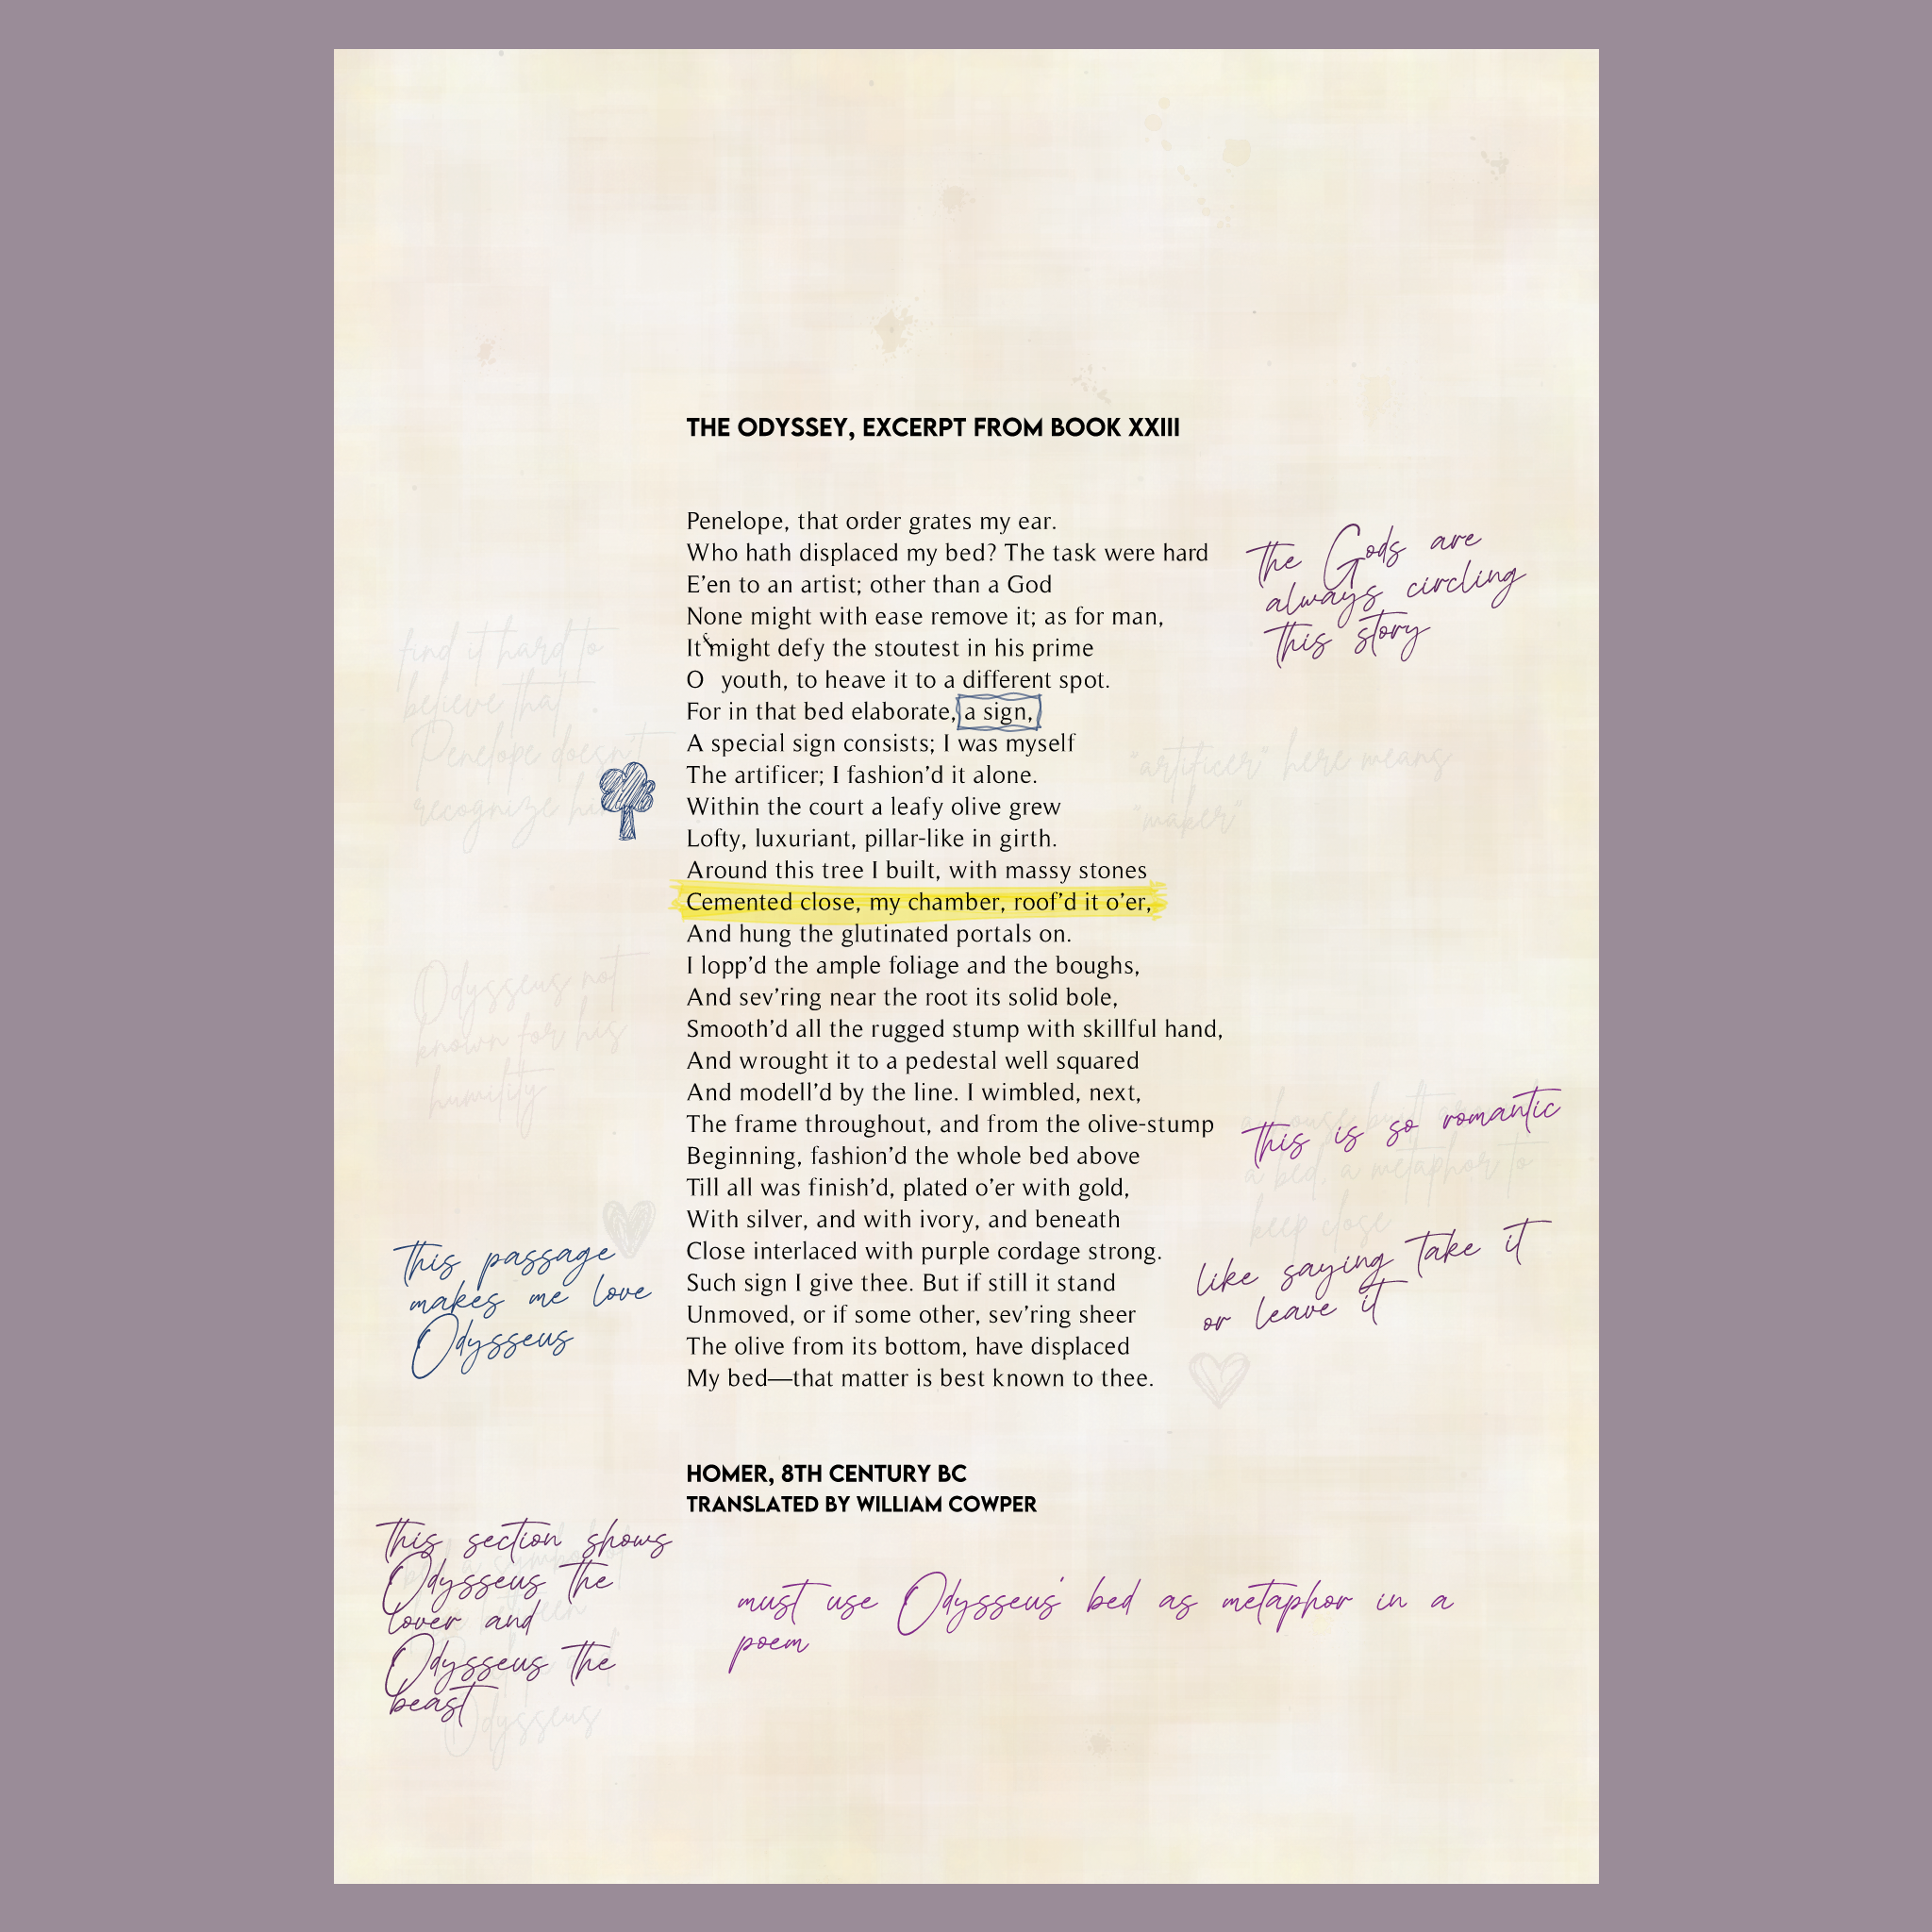 THE ODYSSEY, EXCERPT FROM BOOK XXIII
Penelope, that order grates my ear.
Who hath displaced my bed? The task were hard
E’en to an artist; other than a God
None might with ease remove it; as for man,
It might defy the stoutest in his prime
O youth, to heave it to a different spot.
For in that bed elaborate, a sign,
A special sign consists; I was myself
The artificer; I fashion’d it alone.
Within the court a leafy olive grew
Lofty, luxuriant, pillar-like in girth.
Around this tree I built, with massy stones
Cemented close, my chamber, roof’d it o’er,
And hung the glutinated portals on.
I lopp’d the ample foliage and the boughs,
And sev’ring near the root its solid bole,
Smooth’d all the rugged stump with skillful hand,
And wrought it to a pedestal well squared
And modell’d by the line. I wimbled, next,
The frame throughout, and from the olive-stump
Beginning, fashion’d the whole bed above
Till all was finish’d, plated o’er with gold,
With silver, and with ivory, and beneath
Close interlaced with purple cordage strong.
Such sign I give thee. But if still it stand
Unmoved, or if some other, sev’ring sheer
The olive from its bottom, have displaced
My bed—that matter is best known to thee.
HOMER, 8TH CENTURY BC
TRANSLATED BY WILLIAM COWPER
the Gods are
always circling
this story
find it hard to
believe that
Penelope doesn't
recognize
"artificer" here means
"maker"
Odysseus not
known for his
humility
this is so romantic
a house built
a bed, a metaphor to
keep close
like saying take it
or leave it
this passage
makes me love
Odysseus
this section shows
Odysseus the
lover and
Odysseus the
beast
Odysseus
must use Odysseus' bed as metaphor in a
poem